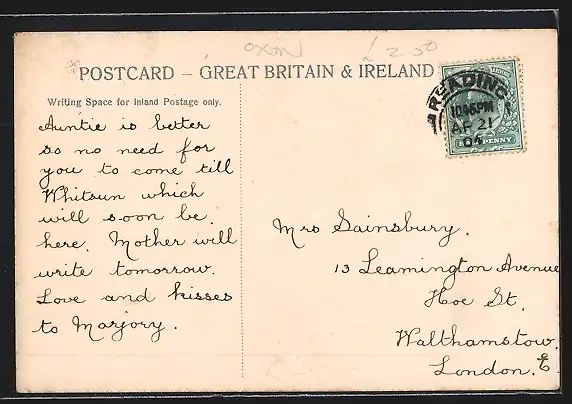 OXON £2.50
POSTCARD – GREAT BRITAIN & IRELAND
Writing Space for Inland Postage only.
READING
10.45PM
AP 21
04
Auntie is better
so no need for
you to come till
Whitsun which
will soon be
here. Mother will
write tomorrow.
Love and kisses
to Marjory.
Mrs Sainsbury.
13 Leamington Avenue
Hoe St.
Walthamstow.
London. E.